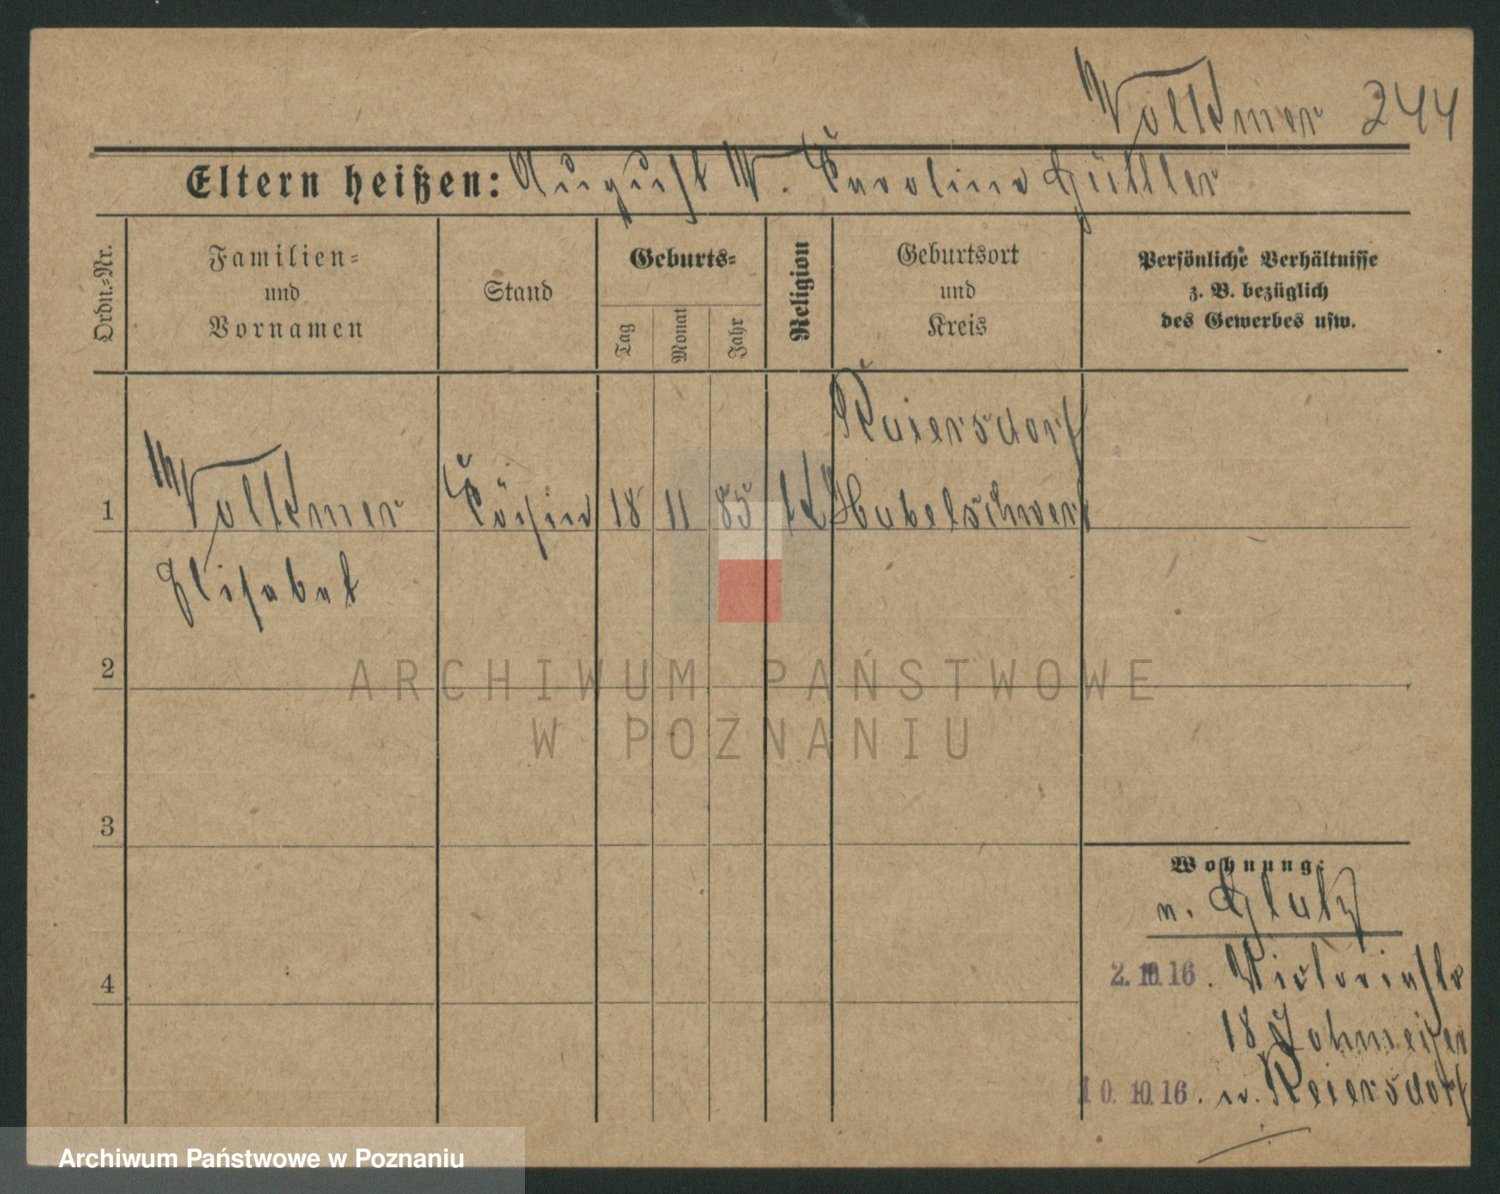 Volkmer 244
Eltern heißen: August V. Caroline Güttler
Ordn.-Nr.
Familien- und Vornamen
Stand
Geburts-
Tag
Monat
Jahr
Religion
Geburtsort und Kreis
Persönliche Verhältnisse z. B. bezüglich des Gewerbes usw.
Kaiersdorf
1 Volkmer Köchin 18 11 85 k. Habelschwert
Elisabet
2
3
4
Wohnung:
v. Glatz
2.10.16. Victoriastr
18
10.10.16. n. Reiersdorf
ARCHIWUM PAŃSTWOWE
W POZNANIU
Archiwum Państwowe w Poznaniu